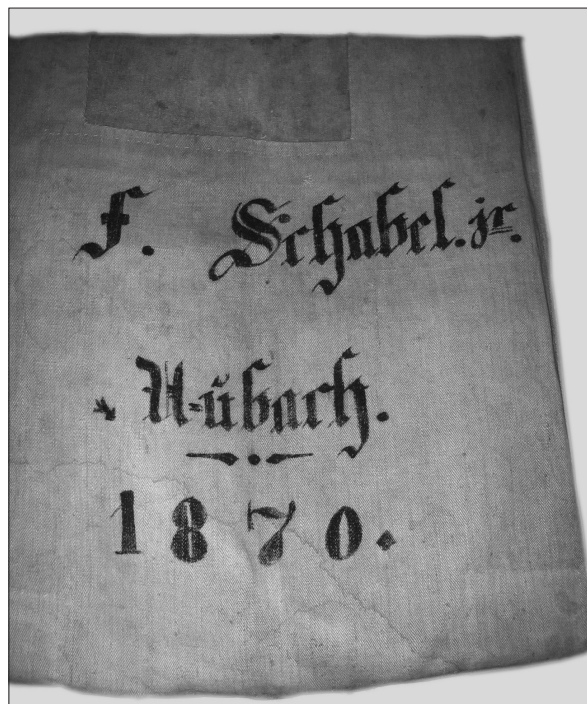 F. Schabel. jr.
U=ŭbach.
1870.